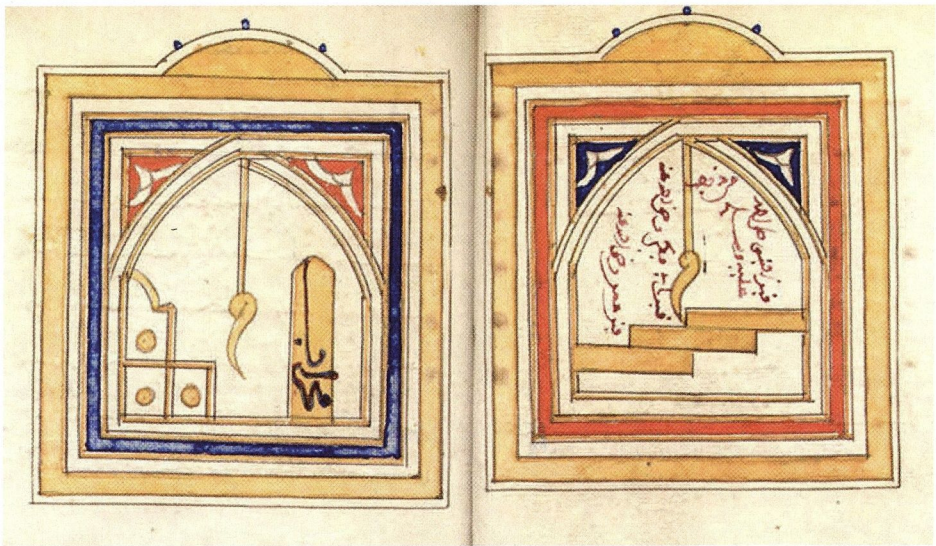 قبر النبي صلى الله
عليه وسلم
قبر ابي بكر رضي الله عنه
قبر عمر رضي الله عنه
محراب